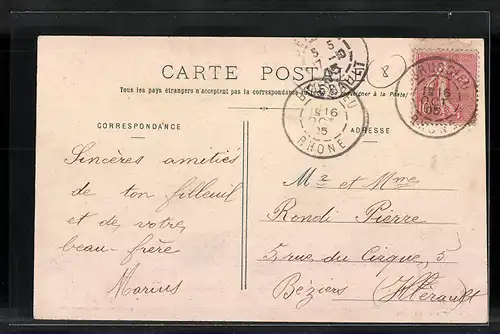 CARTE POSTALE
Tous les pays étrangers n'acceptent pas la correspondance
à la Poste)
8
CORRESPONDANCE
ADRESSE
16
OCT
05
RHONE
16
OCT
05
RHONE
Sincères amitiés
de ton filleuil
et de votre
beau-frère
Marius
Mr et Mme
Rondi Pierre
5 rue du Cirque, 5
Béziers (Hérault)